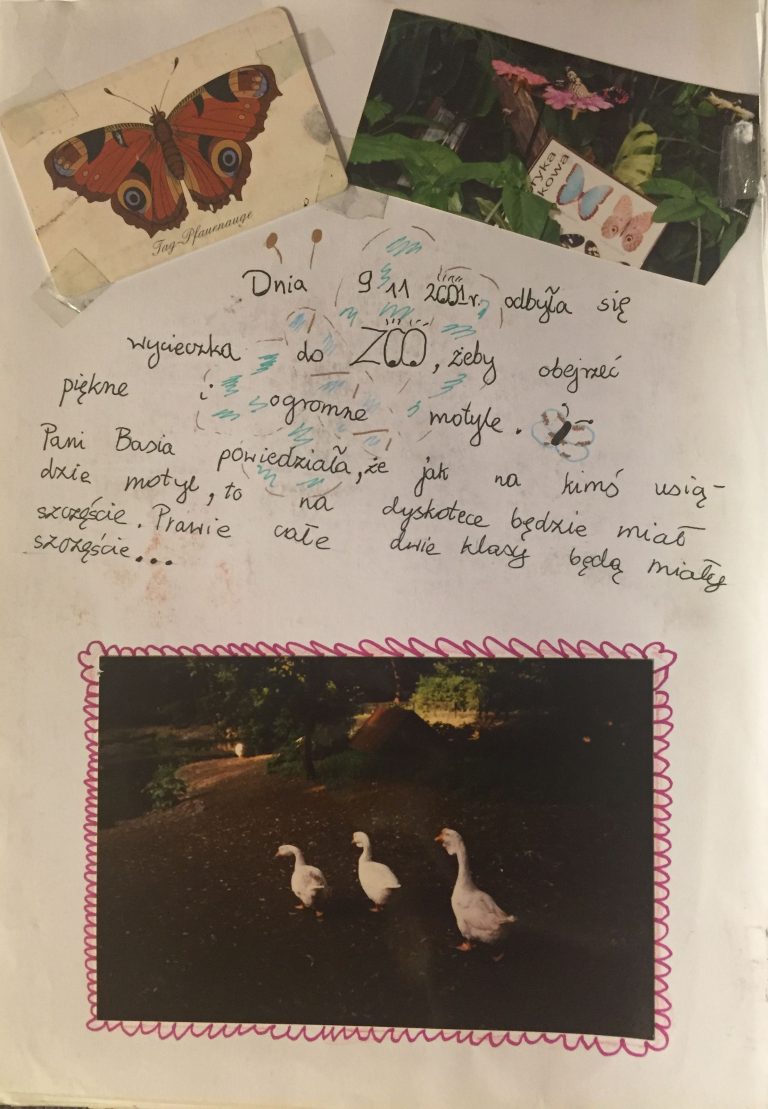 Tag-Pfauenauge
ryka
kowa
Dnia 9 11 2001 r. odbyła się
wycieczka do ZOO, żeby obejrzeć
piękne i ogromne motyle.
Pani Basia powiedziała, że jak na kimś usią-
dzie motyl, to na dyskotece będzie miał
szczęście. Prawie całe dwie klasy będą miały
szczęście...